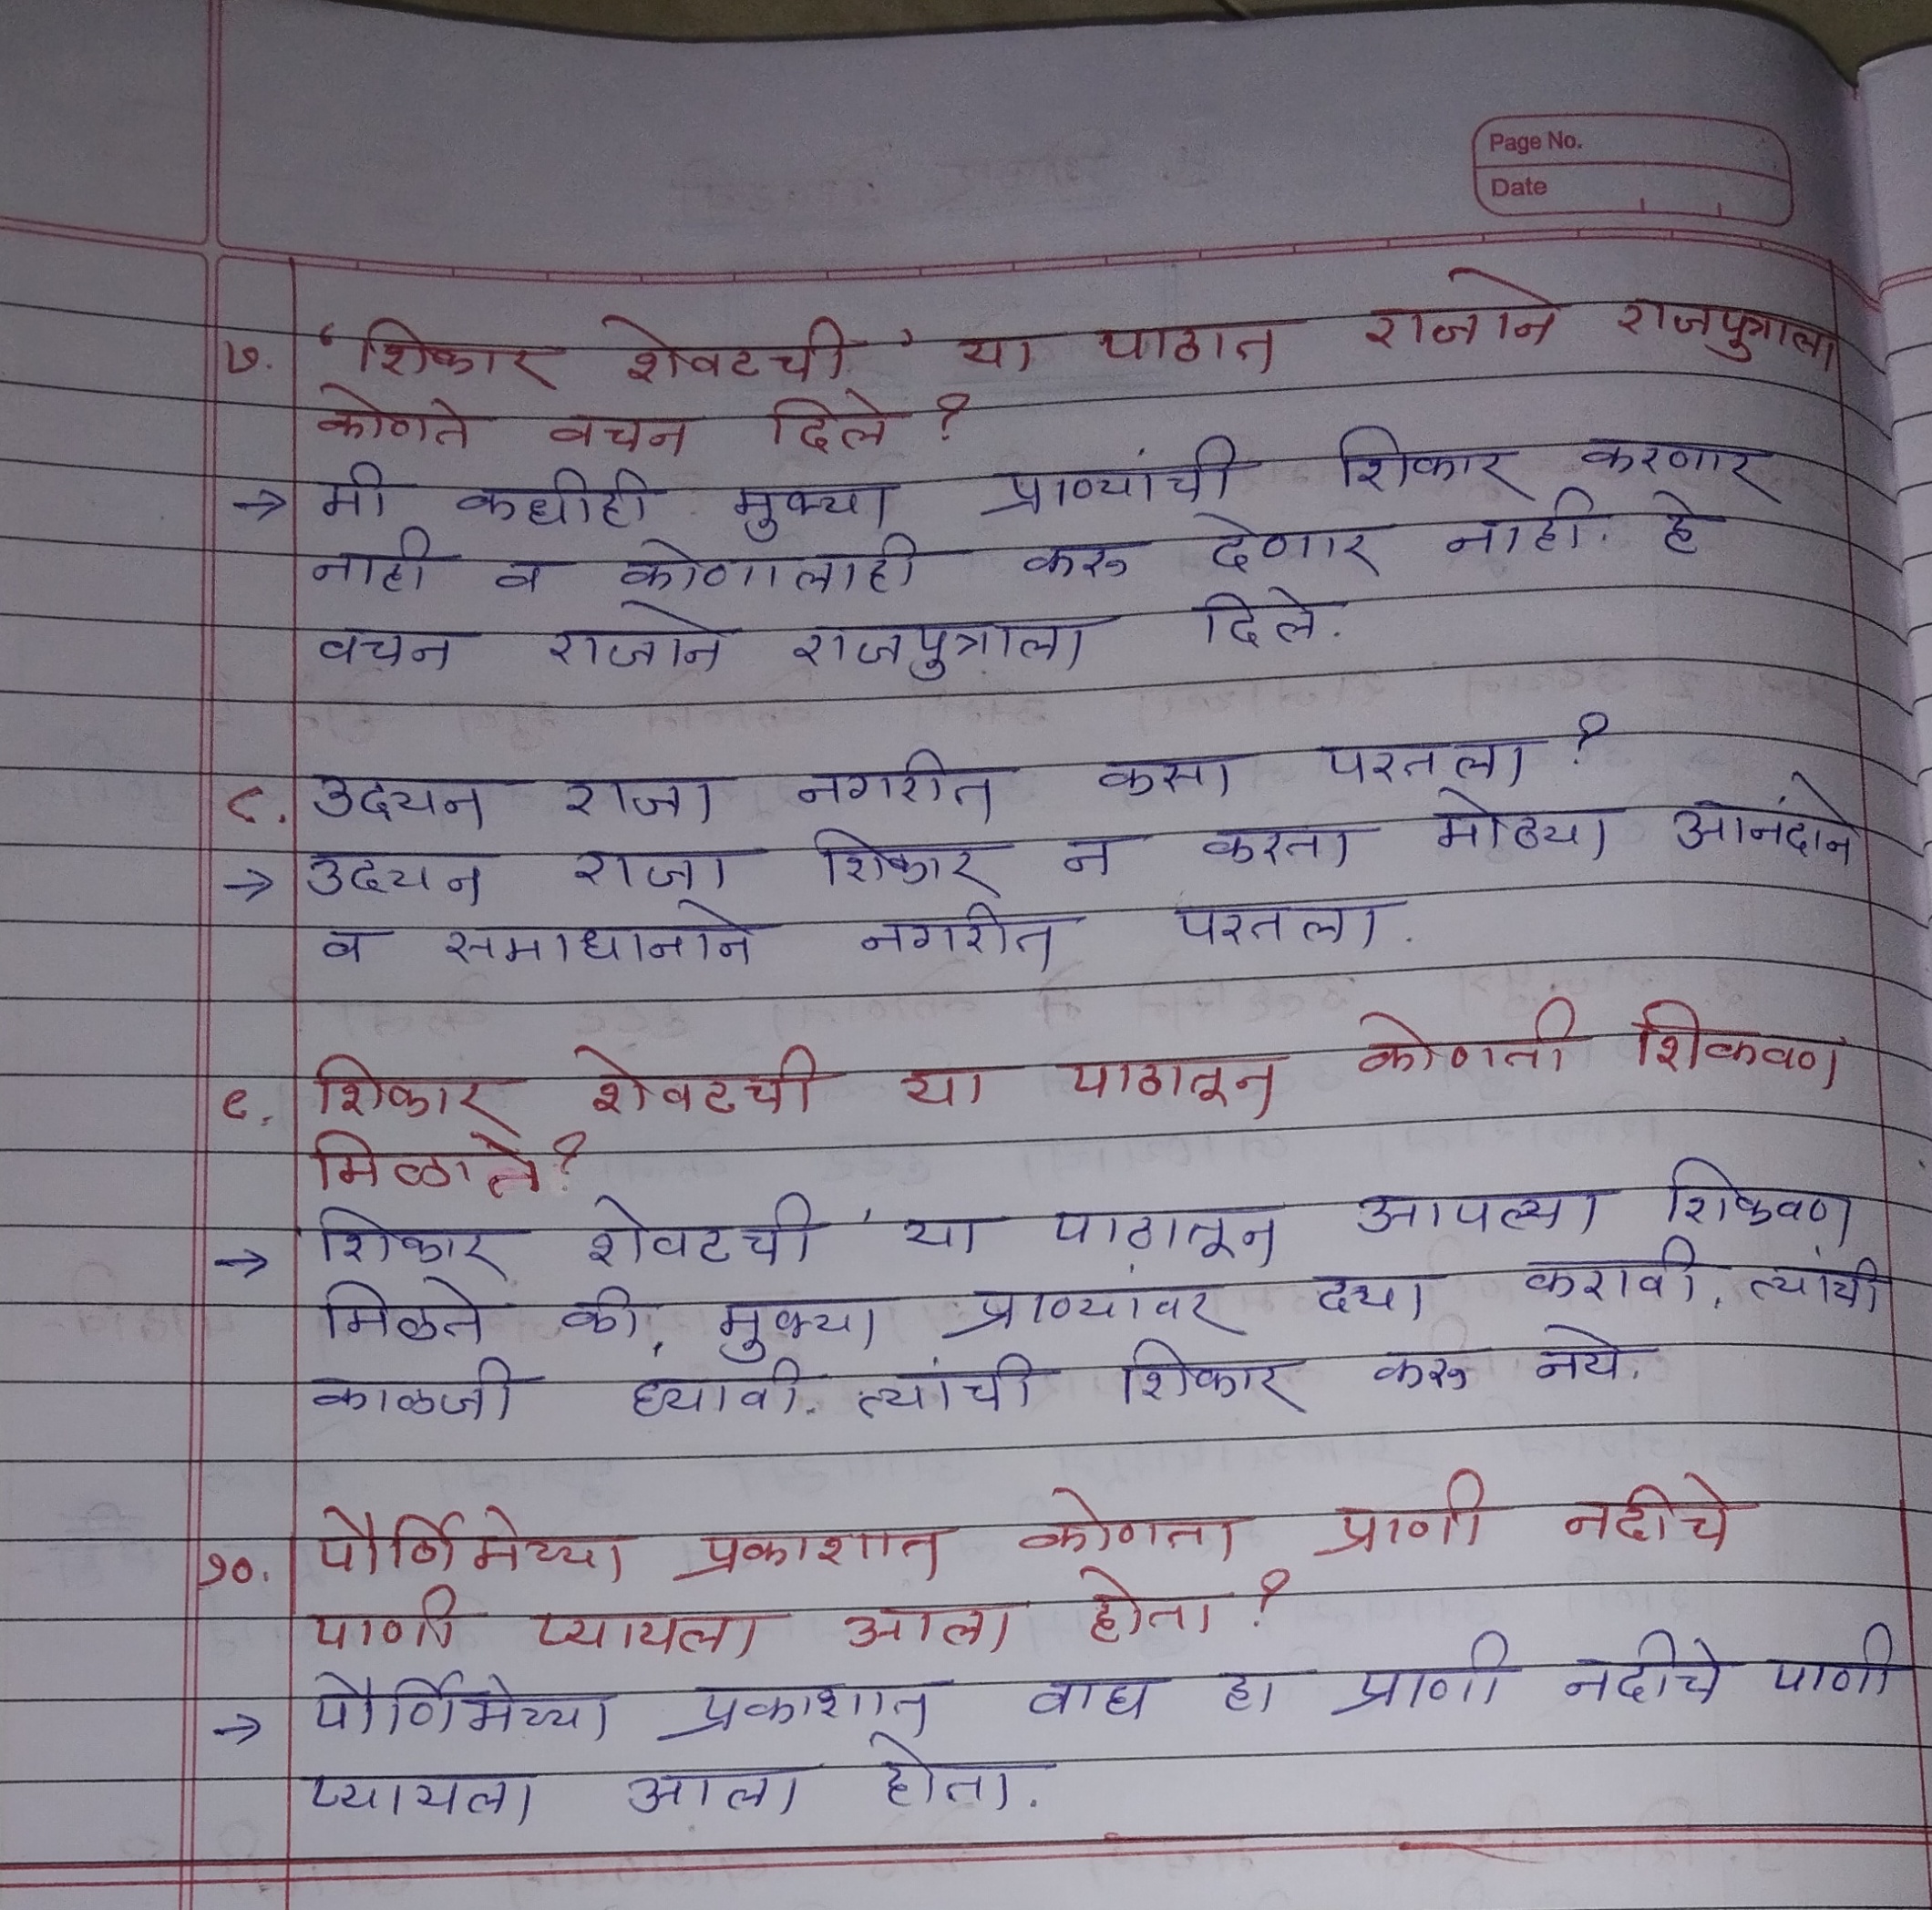 Page No.
Date
७. ‘शिकार शेवटची’ या पाठात राजाने राजपुत्राला
कोणते वचन दिले ?
→ मी कधीही मुक्या प्राण्यांची शिकार करणार
नाही व कोणालाही करू देणार नाही. हे
वचन राजाने राजपुत्राला दिले.
८. उदयन राजा नगरीत कसा परतला ?
→ उदयन राजा शिकार न करता मोठ्या आनंदाने
व समाधानाने नगरीत परतला.
९. शिकार शेवटची या पाठातून कोणती शिकवण
मिळते?
→ शिकार शेवटची ' या पाठातून आपल्या शिकवण
मिळते की, मुक्या प्राण्यांवर दया करावी. त्यांची
काळजी घ्यावी. त्यांची शिकार करू नये.
१०. पौर्णिमेच्या प्रकाशात कोणता प्राणी नदीचे
पाणी प्यायला आला होता ?
→ पौर्णिमेच्या प्रकाशात वाघ हा प्राणी नदीचे पाणी
प्यायला आला होता.